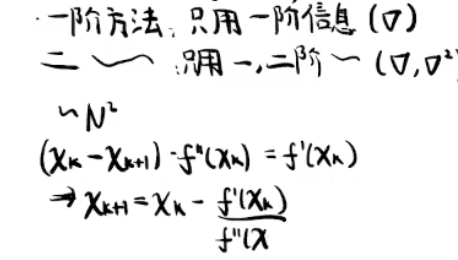 ·一阶方法: 只用一阶信息 (∇)
二 〜 :只用一,二阶〜 (∇,∇²
~N²
(x_k-x_{k+1})·f"(x_k)=f'(x_k)
⇒ x_{k+1}=x_k-\frac{f'(x_k)}{f"(x}